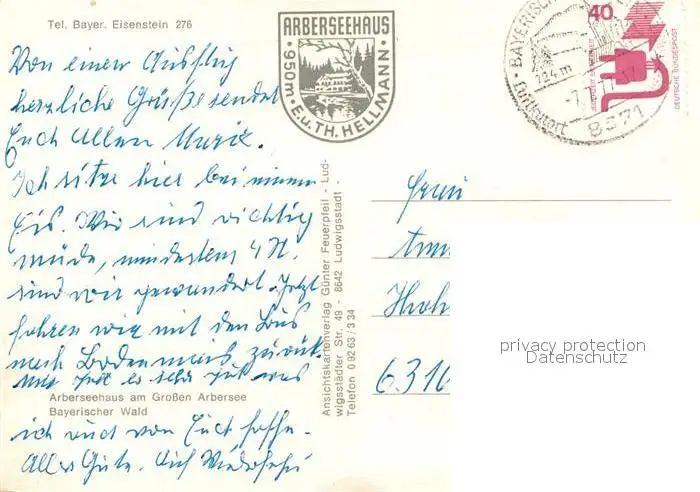 Tel. Bayer. Eisenstein 276
ARBERSEEHAUS
950m · E.u.TH. HELLMANN
40
DEUTSCHE BUNDESPOST
734m
Luftkurort
8371
Von einem Ausflug
herzliche Grüße sendet
Euch Allen Marie.
Ich sitze hier bei einem
Eis. Wir sind richtig
müde, mindestens 4 St.
sind wir gewandert. Jetzt
fahren wir mit dem Bus
nach Bodenmais zurück.
Mir geht es sehr gut was
Arberseehaus am Großen Arbersee
Bayerischer Wald
ich auch von Euch hoffe.
Alles Gute. Auf Wiedersehn
Ansichtskartenverlag Günter Feuerpfeil - Lud-
wigsstädter Str. 49 - 8642 Ludwigsstadt
Telefon 0 92 63 / 3 34
privacy protection
Datenschutz